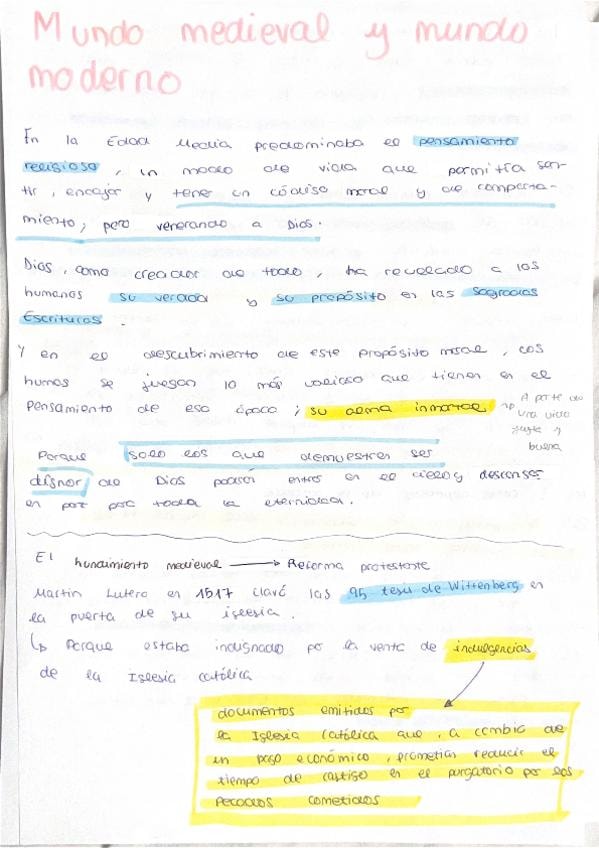 Mundo medieval y mundo
moderno
En la Edad Media predominaba el pensamiento
religioso, un modo de vida que permitía sen-
tir, encajar y tener un código moral y de comporta-
miento, pero venerando a Dios.
Dios, como creador de todo, ha revelado a los
humanos su verdad y su propósito en las Sagradas
Escrituras.
Y en el descubrimiento de este propósito moral, los
humos se juegan lo más valioso que tienen en el
Pensamiento de esa época; su alma inmortal
A parte de
una vida
justa y
buena
Porque solo los que demuestren ser
dignor de Dios podrán entrar en el cielo y descansar
en paz por toda la eternidad.
El hundimiento medieval → Reforma protestante
Martin Lutero en 1517 clavó las 95 tesis de Wittenberg en
la puerta de su iglesia.
↳ Porque estaba indignado por la venta de indulgencias
de la Iglesia católica
documentos emitidos por
la Iglesia católica que, a cambio de
un pago económico, prometían reducir el
tiempo de castigo en el purgatorio por los
pecados cometidos